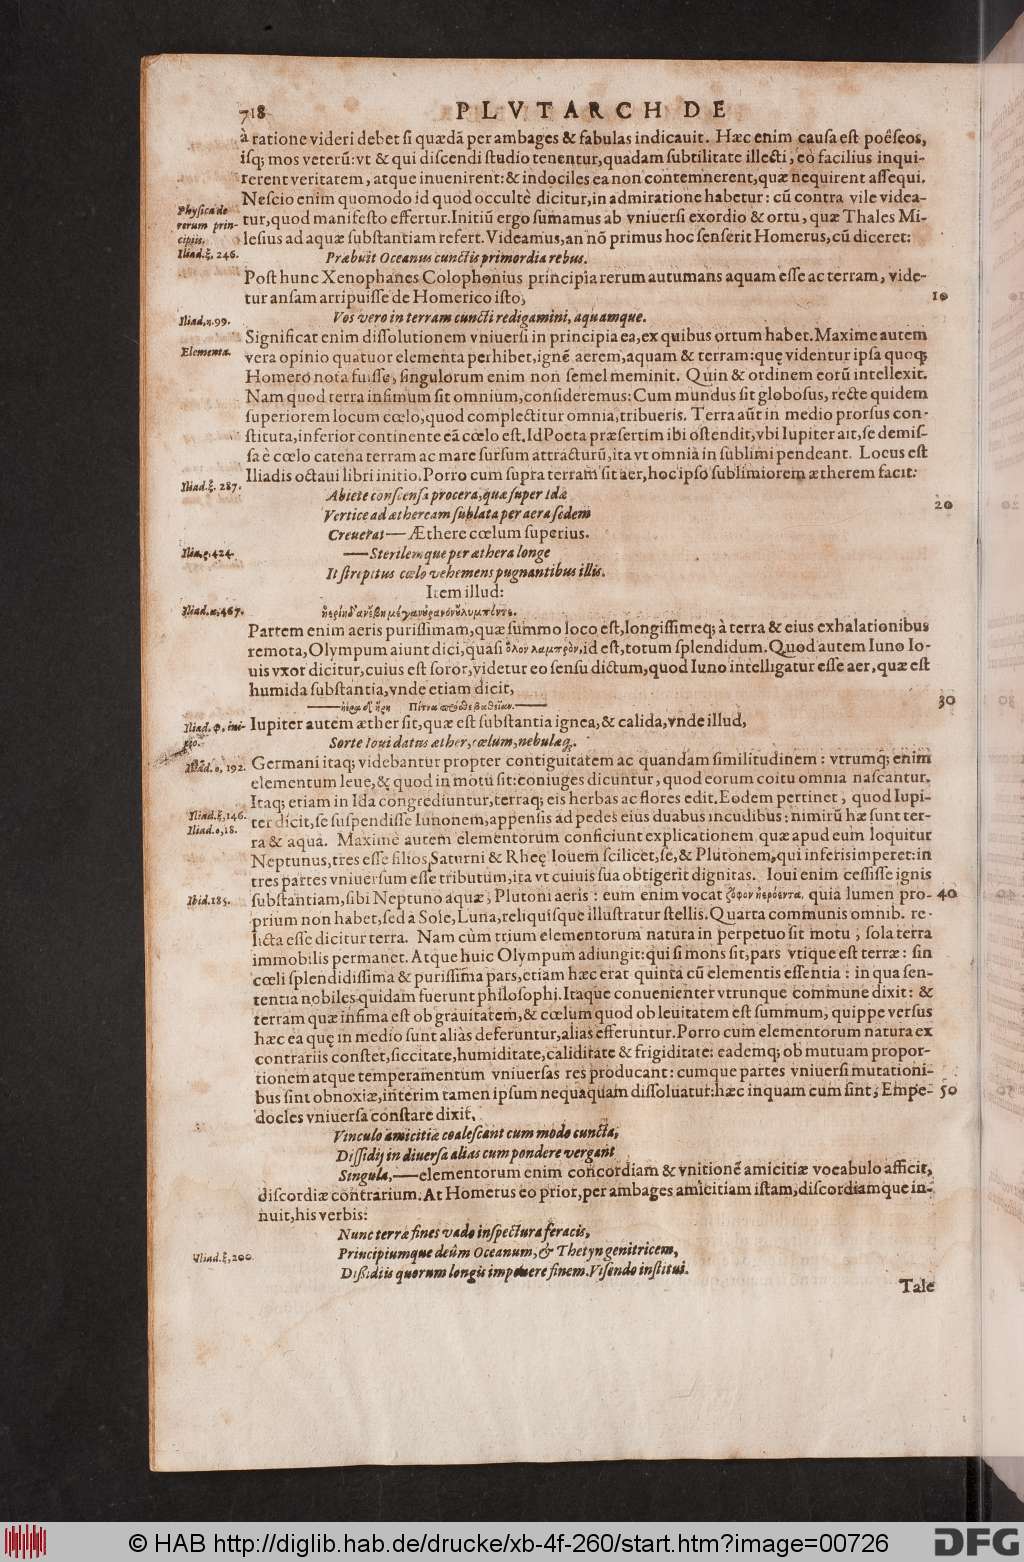 718
PLVTARCH DE
à ratione videri debet si quædā per ambages & fabulas indicauit. Hæc enim causa est poêseos,
isq; mos veterū: vt & qui discendi studio tenentur, quadam subtilitate illecti, eò facilius inqui-
rerent veritatem, atque inuenirent: & indociles ea non contemnerent, quæ nequirent assequi.
Nescio enim quomodo id quod occultè dicitur, in admiratione habetur: cū contra vile videa-
Physica de
rerum prin-
cipiis.
tur, quod manifesto effertur. Initiū ergo sumamus ab vniuersi exordio & ortu, quæ Thales Mi-
lesius ad aquæ substantiam refert. Videamus, an nō primus hoc senserit Homerus, cū diceret:
Iliad.ξ, 246.
Præbuit Oceanus cunctis primordia rebus.
Post hunc Xenophanes Colophonius principia rerum autumans aquam esse ac terram, vide-
tur ansam arripuisse de Homerico isto,
10
Iliad.η.99.
Vos vero in terram cuncti redigamini, aquamque.
Significat enim dissolutionem vniuersi in principia ea, ex quibus ortum habet. Maxime autem
Elementa.
vera opinio quatuor elementa perhibet, ignē aerem, aquam & terram: quę videntur ipsa quoq;
Homero nota fuisse, singulorum enim non semel meminit. Quin & ordinem eorū intellexit.
Nam quod terra infimum sit omnium, consideremus: Cum mundus sit globosus, recte quidem
superiorem locum cœlo, quod complectitur omnia, tribueris. Terra aūt in medio prorsus con-
stituta, inferior continente eā cœlo est. Id Poeta præsertim ibi ostendit, vbi Iupiter ait, se demis-
sa è cœlo catena terram ac mare sursum attracturū, ita vt omnia in sublimi pendeant. Locus est
Iliadis octaui libri initio. Porro cum supra terram sit aer, hoc ipso sublimiorem ætherem facit:
Iliad.ξ. 287.
Abiete conscensa procera, quæ super Idæ
Vertice ad ætheream sublata per aera sedem
20
Creuerat— Æthere cœlum superius.
Ilia.ρ.424.
—Sterilemque per æthera longe
It strepitus cœlo vehemens pugnantibus illis.
Item illud:
Iliad.α.467.
ἠερίηδ' ἀνέβη μέγαν οὐρανὸν οὔλυμπόντε.
Partem enim aeris purissimam, quæ summo loco est, longissimeq; à terra & eius exhalationibus
remota, Olympum aiunt dici, quasi ὅλον λαμπρὸν, id est, totum splendidum. Quod autem Iuno Io-
uis vxor dicitur, cuius est soror, videtur eo sensu dictum, quod Iuno intelligatur esse aer, quæ est
humida substantia, vnde etiam dicit,
30
—ἠέρα δ' ἥρη Πίτνα πρόσθε βαθεῖαν.—
Iliad.φ, ini-
tio.
Iupiter autem æther sit, quæ est substantia ignea, & calida, vnde illud,
Sorte Ioui datus æther, cœlum, nebulæq;.
Iliad. ο, 192.
Germani itaq; videbantur propter contiguitatem ac quandam similitudinem: vtrumq; enim
elementum leue, & quod in motū sit: coniuges dicuntur, quod eorum coitu omnia nascantur.
Itaq; etiam in Ida congrediuntur, terraq; eis herbas ac flores edit. Eodem pertinet, quod Iupi-
Iliad.ξ,146.
Iliad.ο,18.
ter dicit, se suspendisse Iunonem, appensis ad pedes eius duabus incudibus: nimirū hæ sunt ter-
ra & aqua. Maxime autem elementorum conficiunt explicationem quæ apud eum loquitur
Neptunus, tres esse filios Saturni & Rheę Iouem scilicet, se, & Plutonem, qui inferis imperet: in
tres partes vniuersum esse tributum, ita vt cuiuis sua obtigerit dignitas. Ioui enim cessisse ignis
Ibid.185.
substantiam, sibi Neptuno aquæ, Plutoni aeris: eum enim vocat ζόφον ἠερόεντα. quia lumen pro-
40
prium non habet, sed à Sole, Luna, reliquisque illustratur stellis. Quarta communis omnib. re-
licta esse dicitur terra. Nam cùm trium elementorum natura in perpetuo sit motu, sola terra
immobilis permanet. Atque huic Olympum adiungit: qui si mons sit, pars vtique est terræ: sin
cœli splendidissima & purissima pars, etiam hæc erat quinta cū elementis essentia: in qua sen-
tentia nobiles quidam fuerunt philosophi. Itaque conuenienter vtrunque commune dixit: &
terram quæ infima est ob grauitatem, & cœlum quod ob leuitatem est summum, quippe versus
hæc ea quę in medio sunt aliàs deferuntur, alias efferuntur. Porro cum elementorum natura ex
contrariis constet, siccitate, humiditate, caliditate & frigiditate: eademq; ob mutuam propor-
tionem atque temperamentum vniuersas res producant: cumque partes vniuersi mutationi-
bus sint obnoxiæ, interim tamen ipsum nequaquam dissoluatur: hæc inquam cum sint, Empe-
50
docles vniuersa constare dixit,
Vinculo amicitiæ coalescant cum modo cuncta,
Dissidij in diuersa alias cum pondere vergant
Singula,— elementorum enim concordiam & vnitionē amicitiæ vocabulo afficit,
discordiæ contrarium. At Homerus eo prior, per ambages amicitiam istam, discordiamque in-
nuit, his verbis:
Nunc terræ fines vado inspectura feracis,
Iliad.ξ,200.
Principiumque deûm Oceanum, & Thetyn genitricem,
Dissidiis quorum longis imponere finem. Visendo institui.
Tale
© HAB http://diglib.hab.de/drucke/xb-4f-260/start.htm?image=00726
DFG